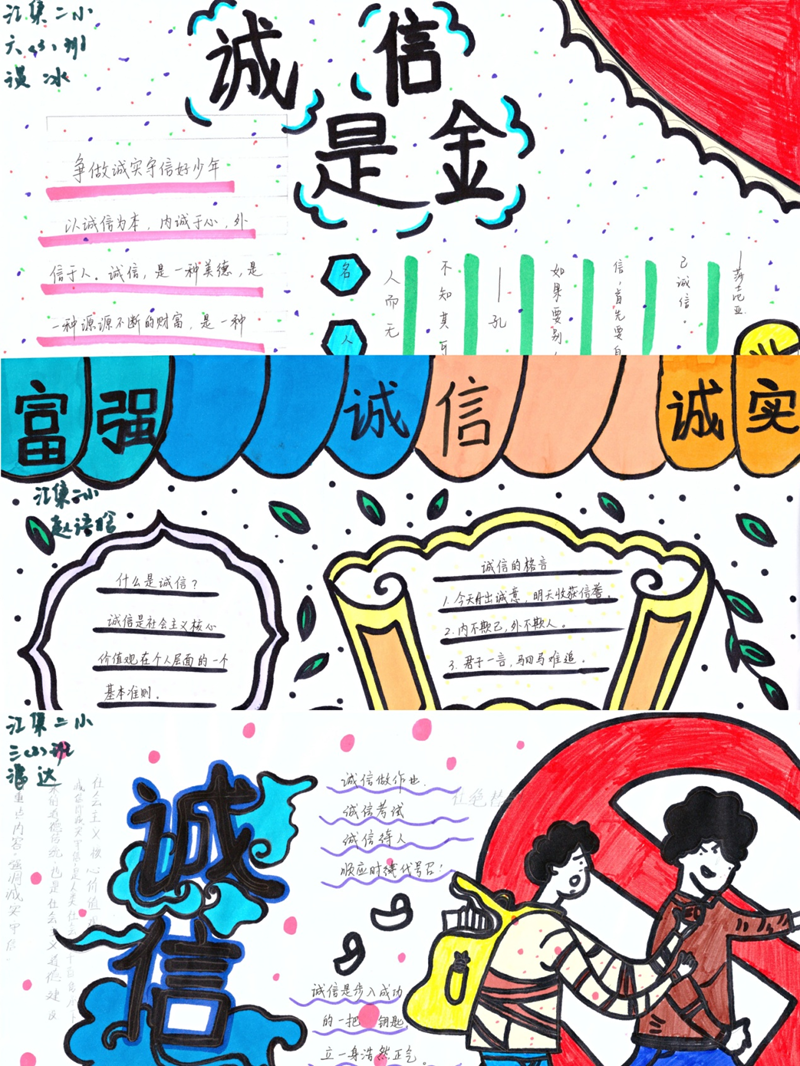 汇集二小
诚信
是金
争做诚实守信好少年
以诚信为本，内诚于心，外
信于人。诚信，是一种美德，是
一种源源不断的财富，是一种
名人
人而无
不知其可
——孔
如果要别
信，首先要自
己诚信。
——莎士比亚
富强 诚信 诚实
汇集二小
什么是诚信？
诚信是社会主义核心
价值观在个人层面的一个
基本准则。
诚信的格言
1.今天付出诚意，明天收获信誉。
2.内不欺己，外不欺人。
3.君子一言，驷马难追。
汇集二小
诚信
诚信做作业
诚信考试
诚信待人
顺应时代号召
诚信是步入成功
的一把 钥匙
立一身浩然正气。